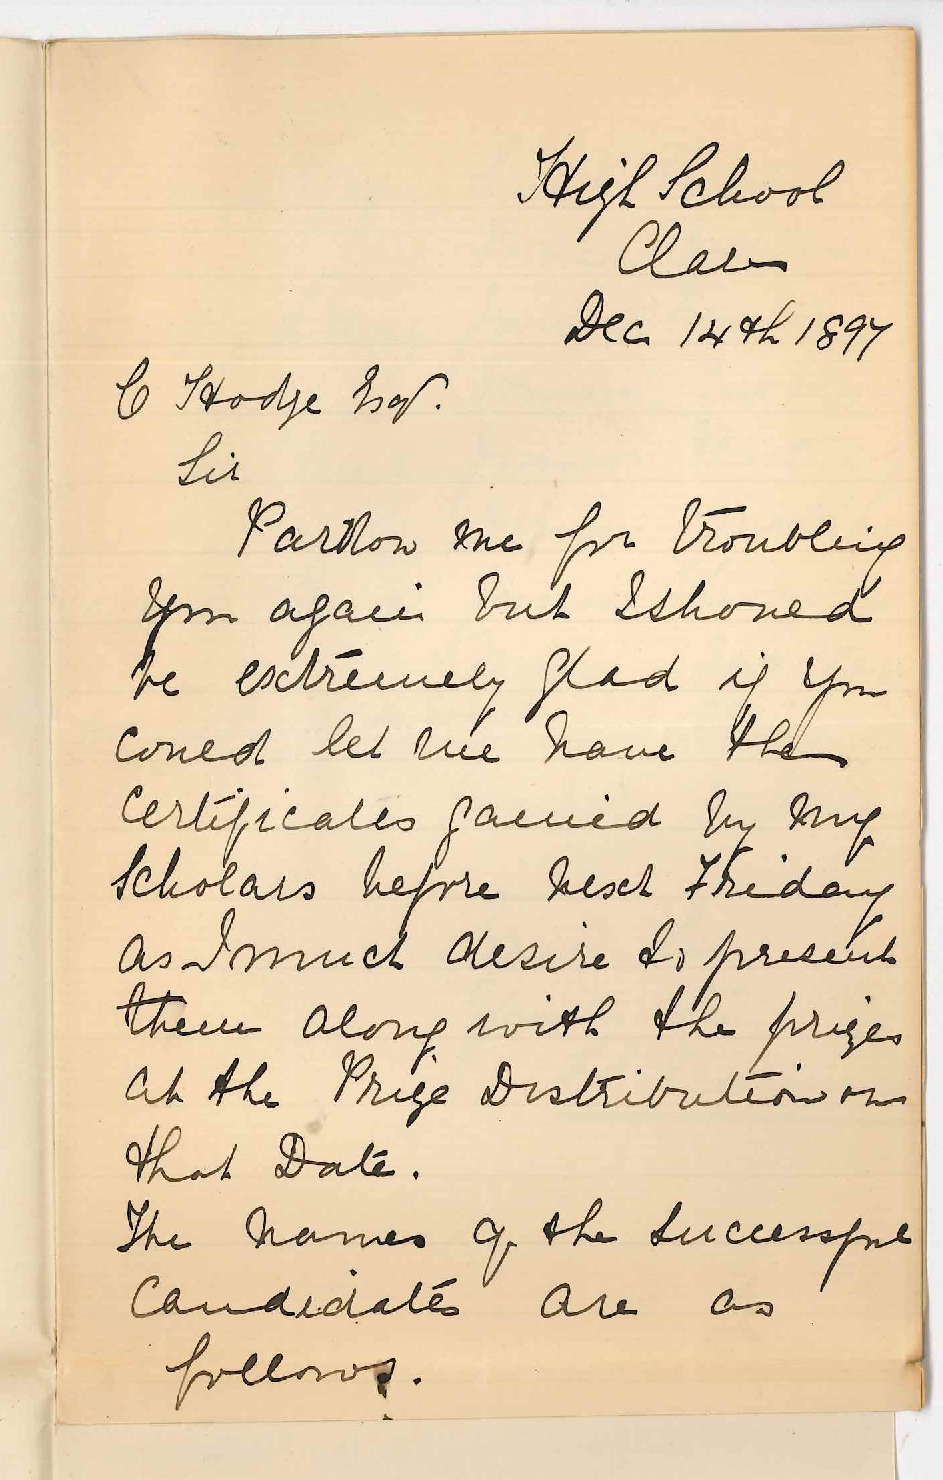 High School
Clare
Dec 14th 1897
C Hodge Esqr.
Sir
Pardon me for troubling
you again but I should
be extremely glad if you
could let me have the
certificates gained by my
scholars before next Friday
as I much desire to present
them along with the prizes
at the Prize Distribution on
that Date.
The names of the successful
Candidates are as
follows.